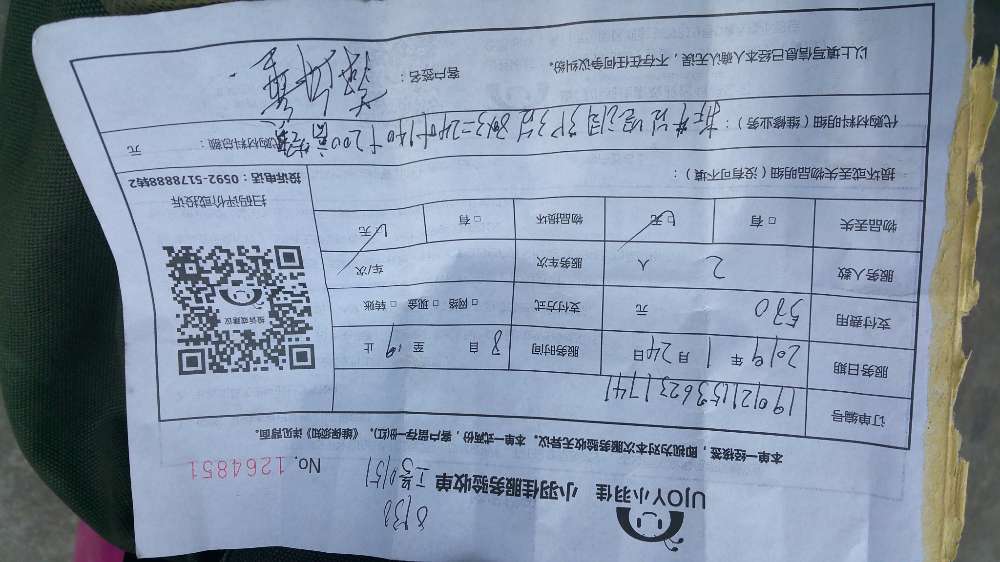 8130
UJOY小羽佳 小羽佳服务验收单 工号0151 No. 1264851
本单一经接签，即视为对本次服务验收无异议。本单一式两份，客户留存一份(红)，《维保须知》详见背面。
订单编号 1901211536231741
服务日期 2019年1月24日 服务时间 8自 至19止
支付费用 570元 支付方式 □网络 □现金 □转账
服务人数 2人 服务车次 车/次
物品丢失 □有 ☑无 物品损坏 □有 ☑无
投诉或建议
扫码评价或投诉
投诉电话：0592-5178888转2
损坏或丢失物品明细（没有可不填）：
代购材料明细（维修业务）： 代购材料总额： 元
以上填写信息已经本人确认无误，不存在任何争议纠纷。 客户签名：